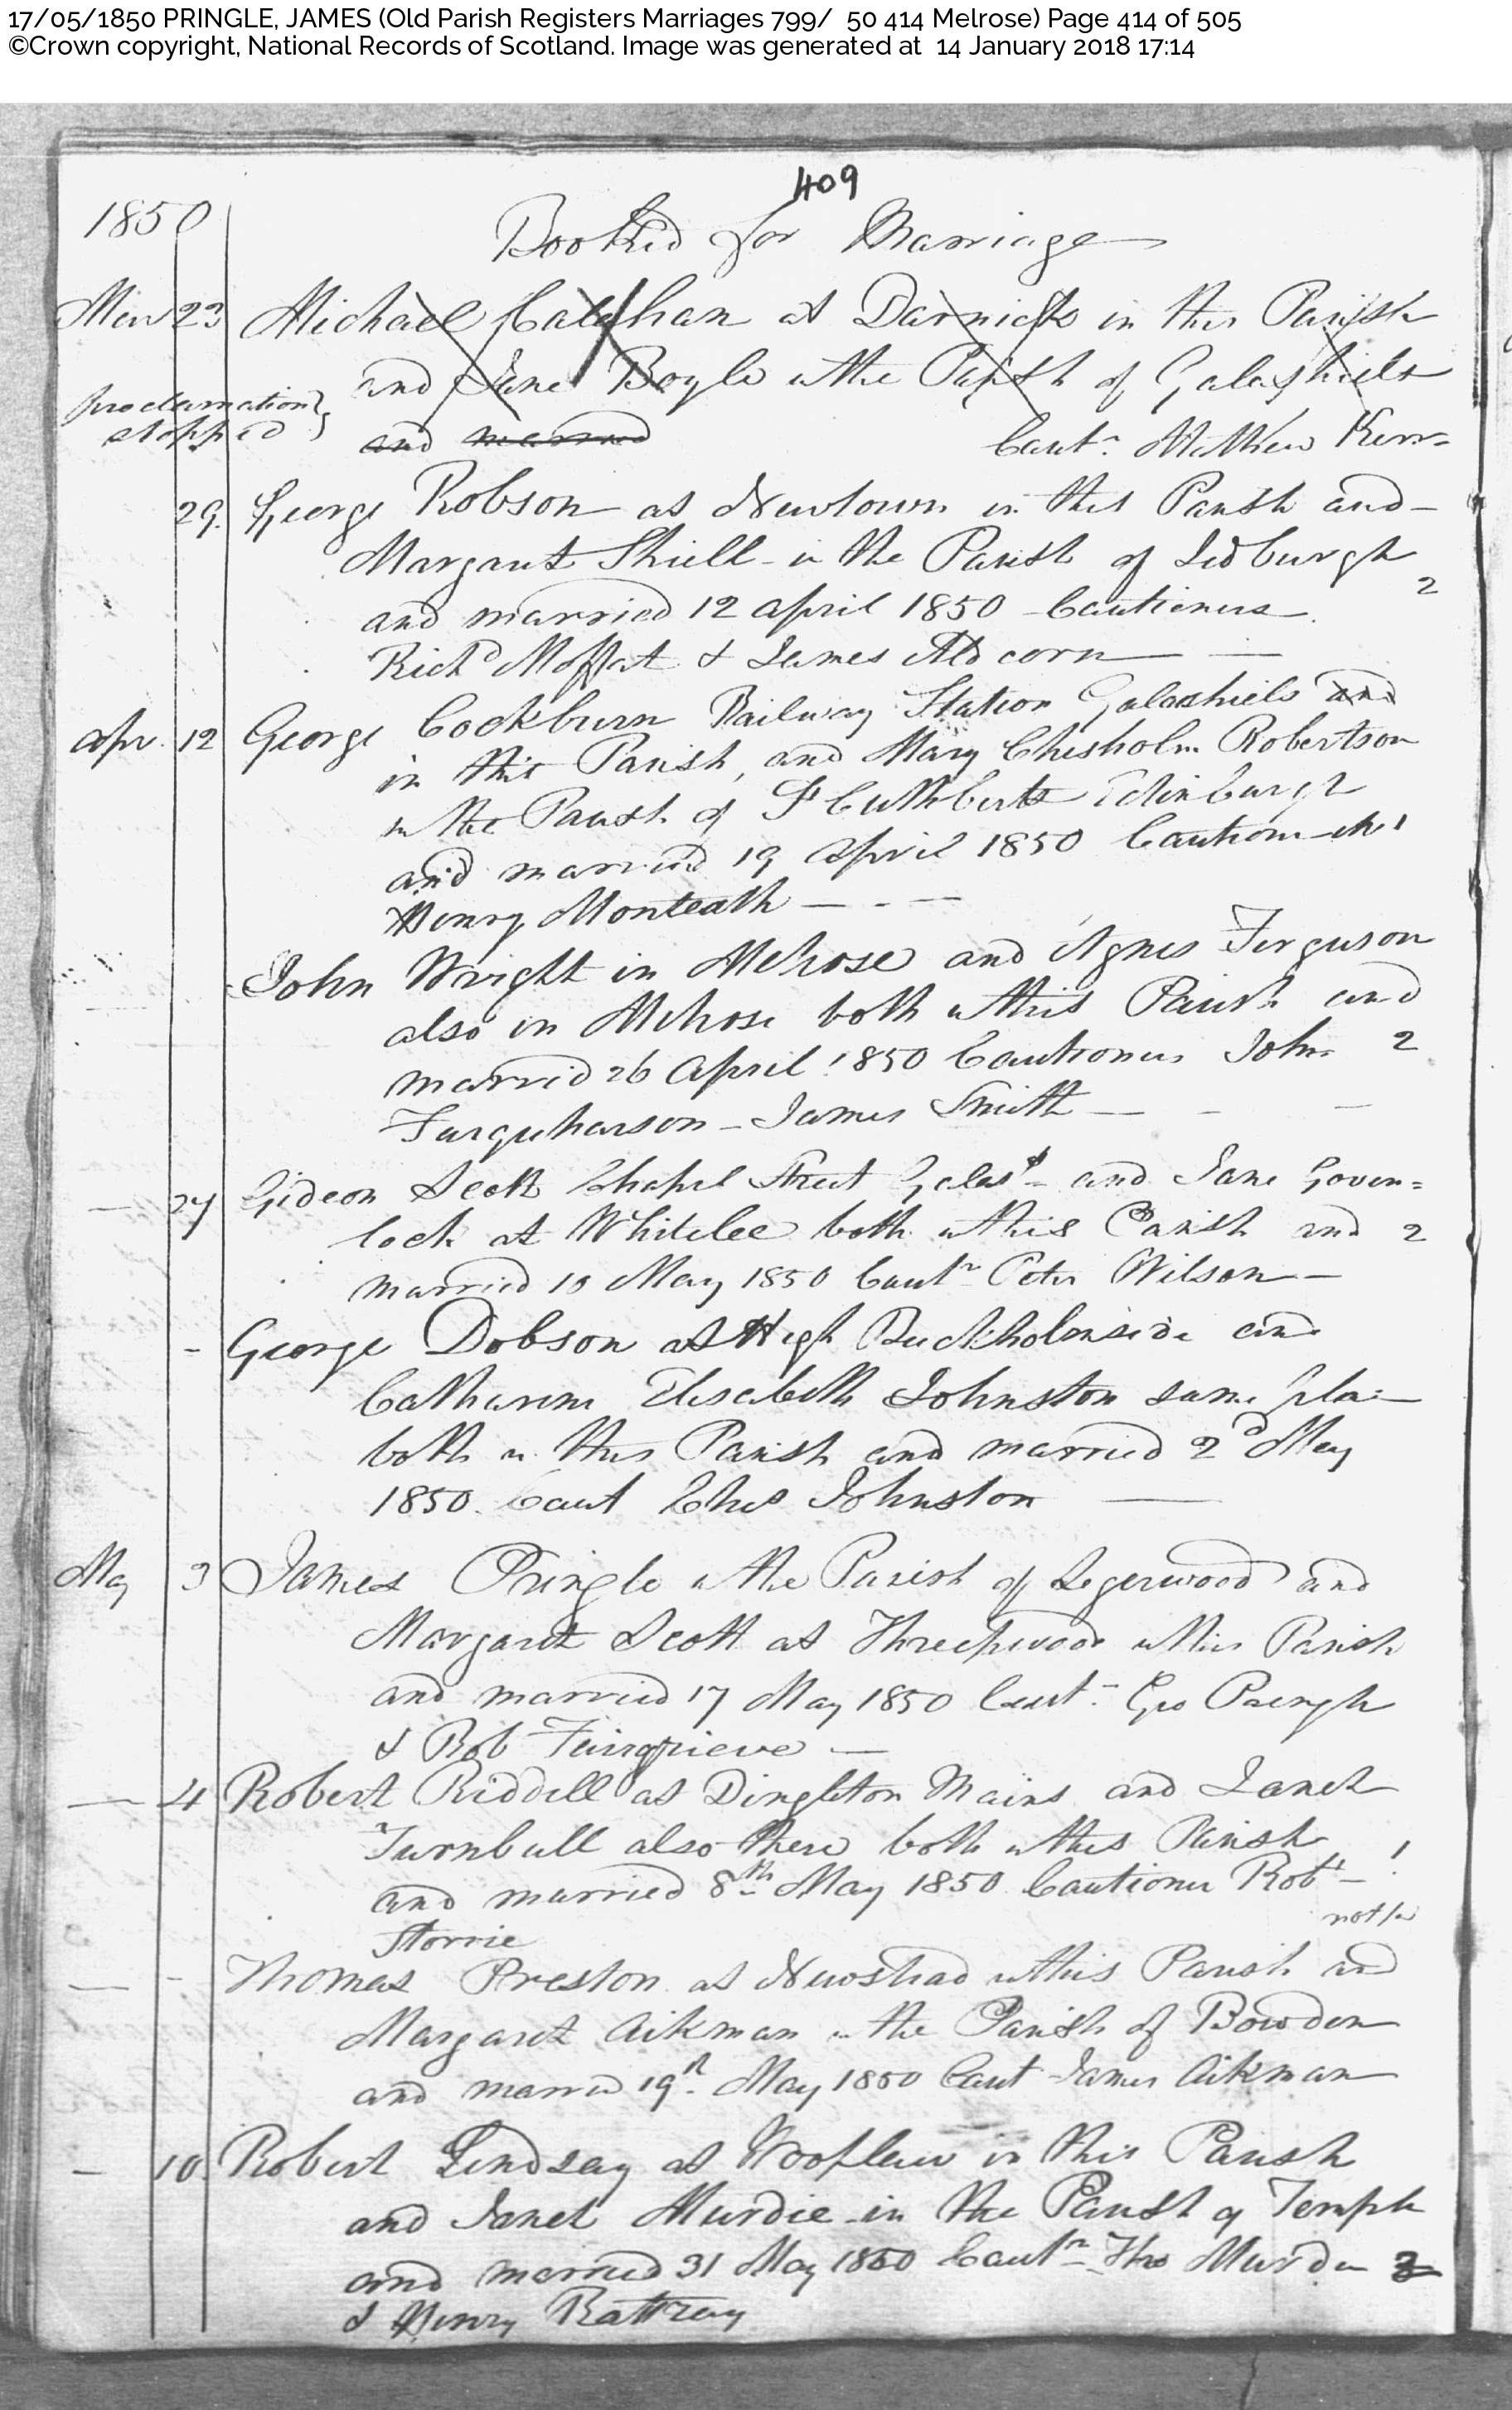 17/05/1850 PRINGLE, JAMES (Old Parish Registers Marriages 799/ 50 414 Melrose) Page 414 of 505
©Crown copyright, National Records of Scotland. Image was generated at 14 January 2018 17:14
409
1850
Booked for Marriage
23 Michael Calaghan at Darnick in this Parish
and Jane Boyle in the Parish of Galashiels
proclamation
stopped
and married Cautr. Mathew Kerr
29. George Robson at Newtown in this Parish and
Margaret Shiell in the Parish of Jedburgh
and married 12 april 1850 Cautioners 2
Richd Moffat & James Aldcorn
Apr. 12 George Cockburn Railway Station Galashiels and
in this Parish, and Mary Chisholm Robertson
in the Parish of St Cuthberts Edinburgh
and married 19 April 1850 Cautioner 1
Henry Monteath
John Wright in Melrose and Agnes Ferguson
also in Melrose both in this Parish and
married 26 April 1850 Cautioners John 2
Farquharson - James Smith
27 Gideon Scott Chapel Street Galas and Jane Goven=
lock at Whitelee both in this Parish and 2
married 10 May 1850 Cautr Peter Wilson
George Dobson at High Buckholmside and
Catharine Elisabeth Johnston same
both in this Parish and married 2d May
1850. Caut Chas Johnston
May 3 James Pringle in the Parish of Legerwood and
Margaret Scott at Threepwood in this Parish
and married 17 May 1850 Caut. Geo
& Rob Fairgrieve
4 Robert Riddell at Dingleton Mains and Janet
Turnbull also there both in this Parish
and married 8th May 1850 Cautioner Robt 1
Storrie
Thomas Preston at Newstead in this Parish and
Margaret Aikman in the Parish of Bowden
and married 19th May 1850 Caut James Aikman
10. Robert Lindsay at in this Parish
and Janet Murdie in the Parish of Temple
and married 31 May 1850 Cautr Thos Murdie 2
& Henry Rattray